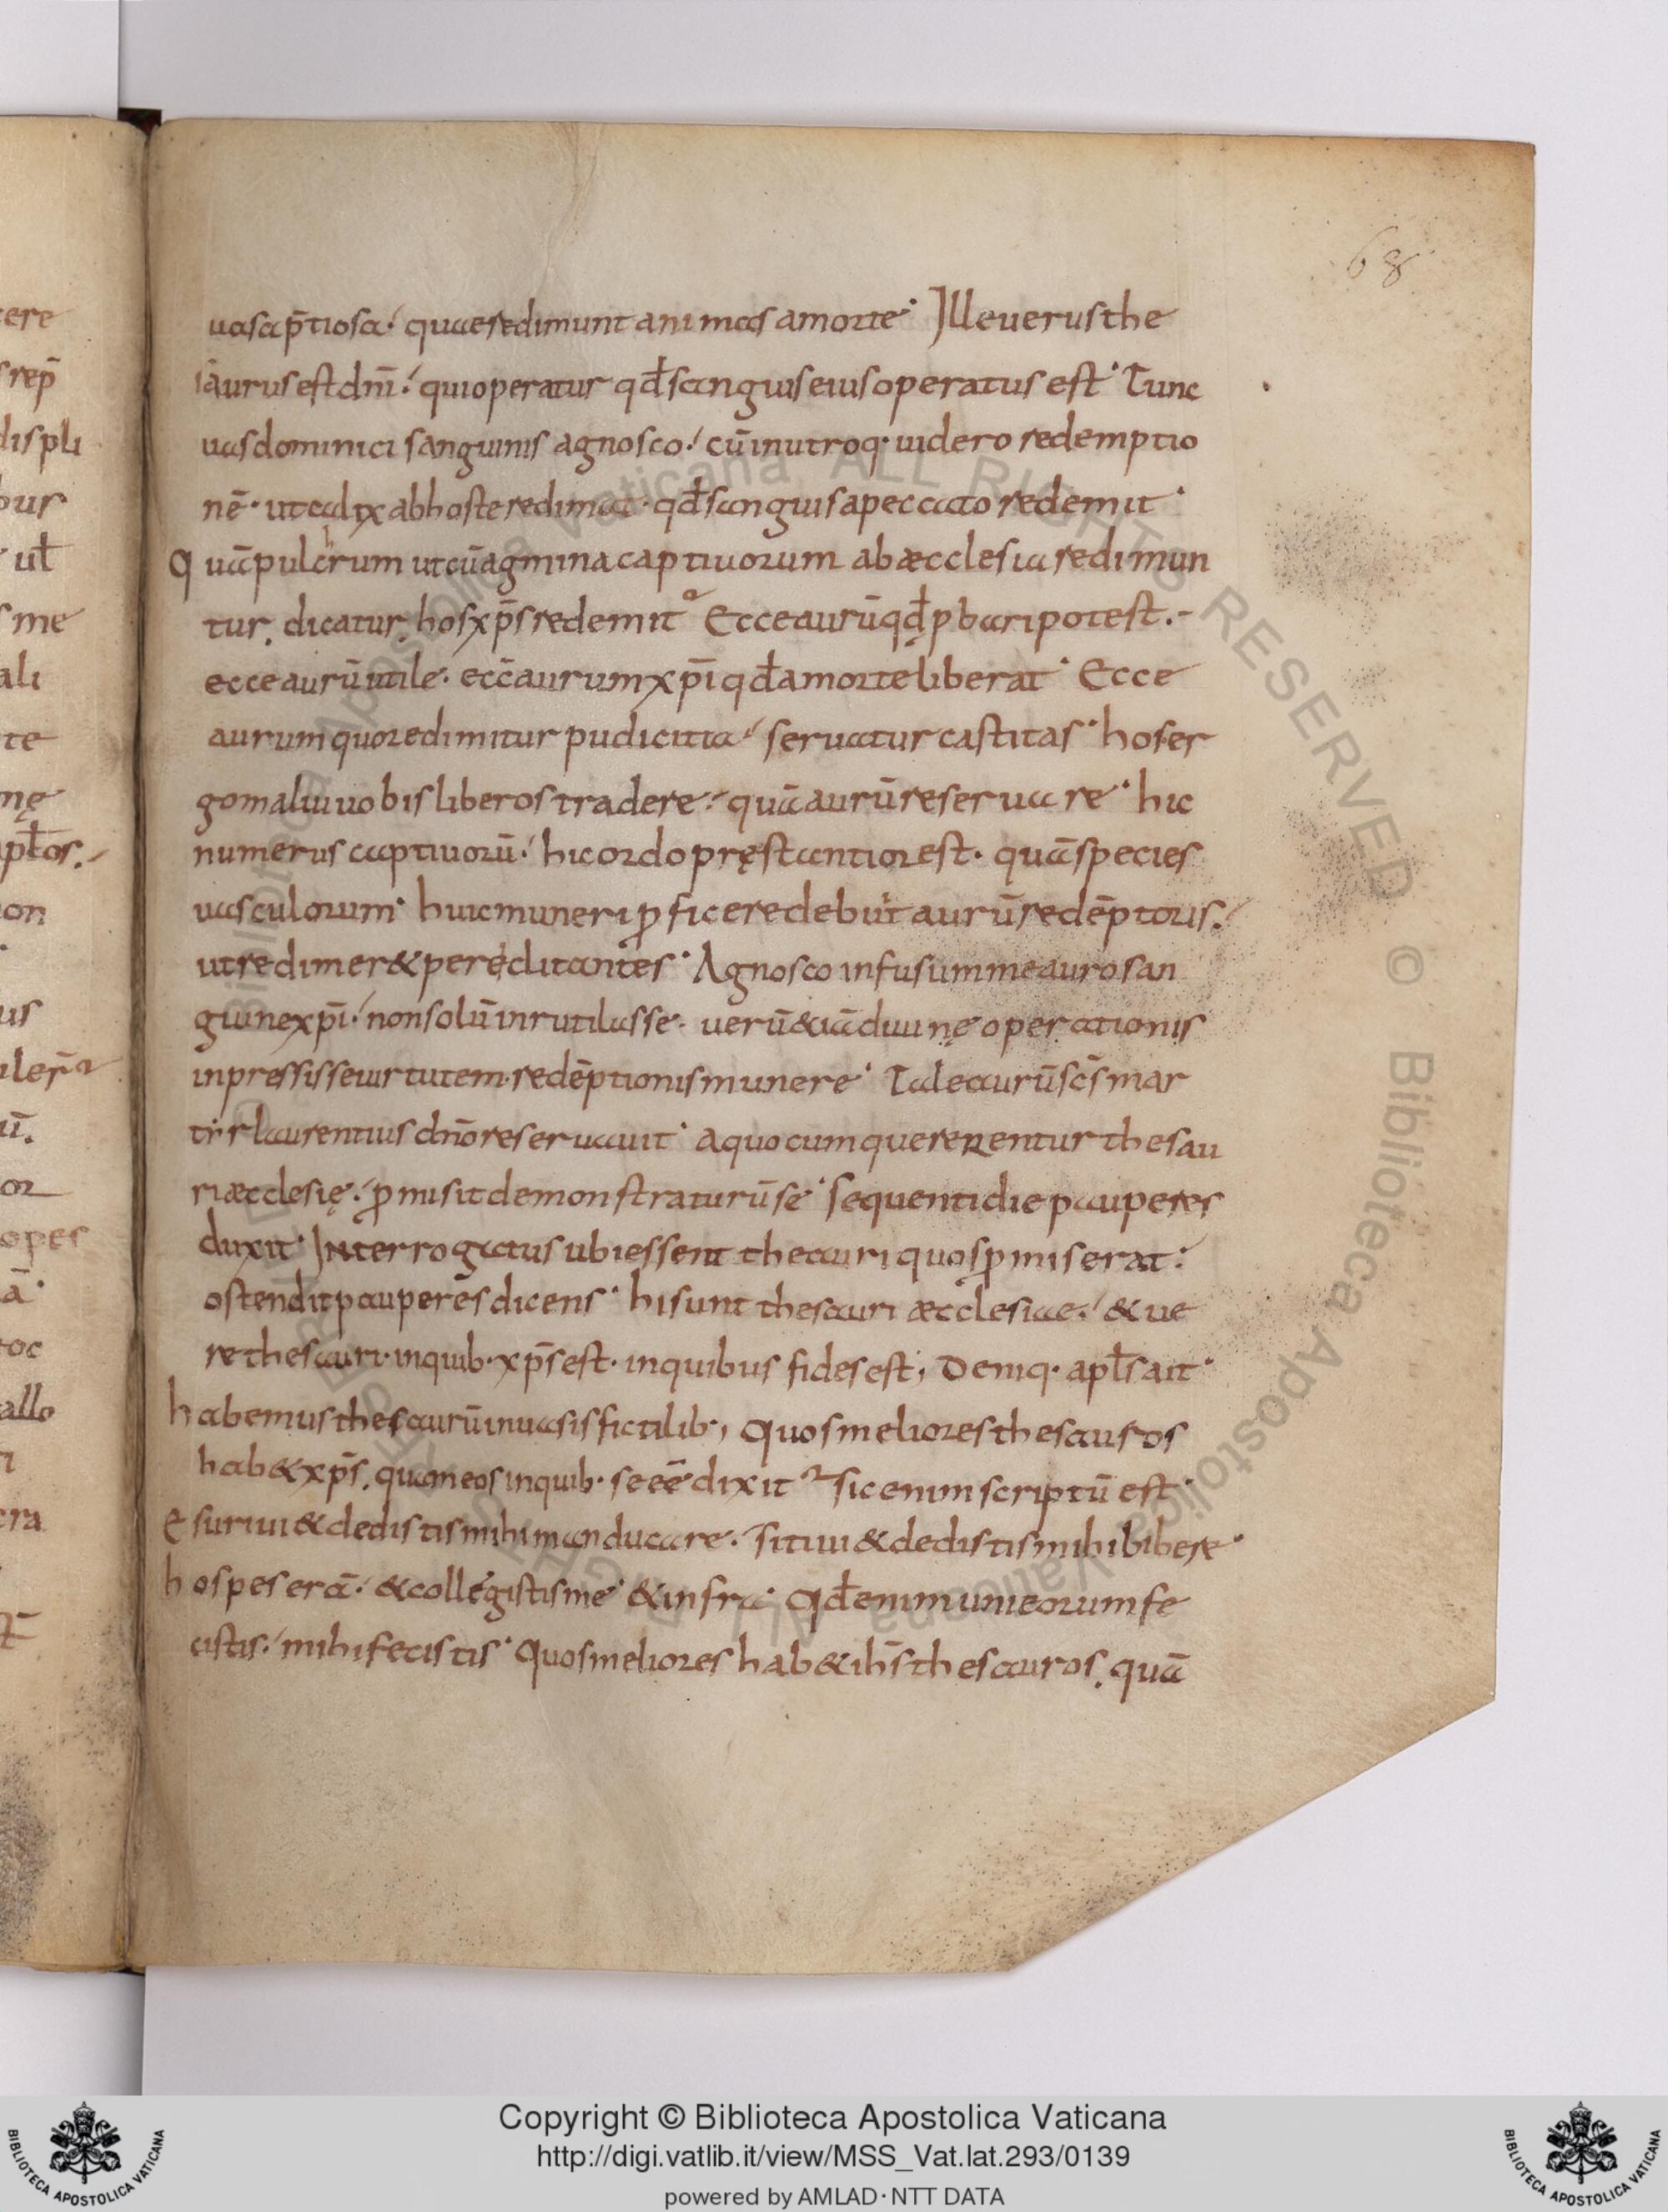 68
uasap̄tiosa. quaeredimunt animas amorte. Ille uerus the
saurus est dnī. qui operatur qd̄ sanguis eius operatus est. Tunc
uas dominici sanguinis agnosco. cū in utroq· uidero redemptio
nē· ut calix abhoste redimat· qd̄ sanguis apeccato redemit.
Quā pulchrum ut cū agmina captiuorum ab æcclesia redimun
tur. dicatur. hos xp̄s redemit. Ecce aurū qd̄ pbari potest.
ecce aurū utile. ecce aurum xp̄i qd̄ amorte liberat. Ecce
aurum quo redimitur pudicitia. seruatur castitas. hos er
go malui uobis liberos tradere. quā aurū reseruare. hic
numerus captiuorū. hic ordo pręstantior est. quā species
uasculorum. huic muneri pficere debuit aurū redēptoris.
ut redimer& pereclitantes. Agnosco infusumme auro san
guine xp̄i. non solū inrutilasse. uerū &iā diuinę operationis
inpressisse uirtutem redēptionis munere. Tale aurū scs̄ mar
tir laurentius dn̄o reseruauit. a quo cum quererentur thesau
ri æcclesię. pmisit demonstraturū se. sequenti die pauperes
duxit. Interrogatus ubi essent theauri quos pmiserat.
ostendit pauperes dicens. hi sunt thesauri æcclesiae. & ue
re thesauri. in quib· xp̄s est. in quibus fides est; Deniq· apl̄s ait.
habemus thesaurū in uasis fictilib·; Quos meliores thesauros
hab& xp̄s. quam eos in quib· se eē dixit. sic enim scriptū est.
Esuriui & dedistis mihi manducare. sitiui & dedistis mihi bibere.
hospes erā. & collegistis me. & infra. Qd̄ enim uni eorum fe
cistis. mihi fecistis. Quos meliores hab& ihs̄ thesauros. quā
Copyright © Biblioteca Apostolica Vaticana
http://digi.vatlib.it/view/MSS_Vat.lat.293/0139
powered by AMLAD·NTT DATA
BIBLIOTECA APOSTOLICA VATICANA
BIBLIOTECA APOSTOLICA VATICANA